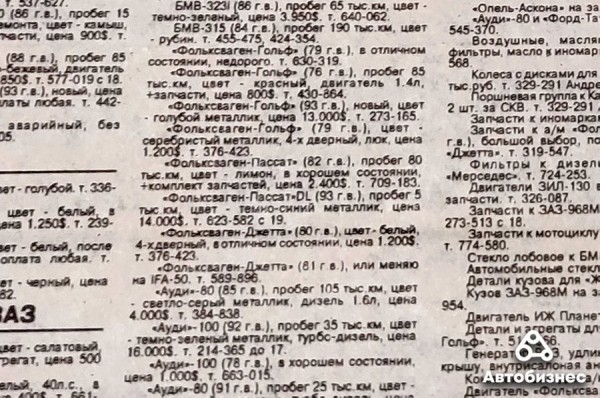 т. 537-627.
0 (86 г.в.), пробег 15
емонта, цвет - камыш,
пчасти, цена 900$. т.
(88 г.в.), пробег 85
о-бежевый, двигатель
850$. т. 577-019 с 18.
(93 г.в.), новый, цена
латы любая. т. 442-
аварийный, без
05.
вет - голубой. т. 336-
цвет - белый, в
на 1.250$. т. 239-
вет - белый, после
оплата любая. т.
ет - черный, цена
82.
ВАЗ
цвет - салатовый
регат, цена 500
елый, 40л.с., в
БМВ-323i (86 г.в.), пробег 65 тыс.км, цвет -
темно-зеленый, цена 3.950$. т. 640-062.
БМВ-315 (84 г.в.), пробег 190 тыс.км, цвет
- рубин. т. 455-475, 424-354.
«Фольксваген-Гольф» (79 г.в.), в отличном
состоянии, недорого. т. 630-319.
«Фольксваген-Гольф» (76 г.в.), пробег 85
тыс.км, цвет - красный, двигатель 1.4л,
+запчасти, цена 800$. т. 430-864.
«Фольксваген-Гольф» (93 г.в.), новый, цвет
- голубой металлик, цена 13.000$. т. 273-165.
«Фольксваген-Гольф» (79 г.в.), цвет -
серебристый металлик, 4-х дверный, люк, цена
1.200$. т. 376-423.
«Фольксваген-Пассат» (82 г.в.), пробег 80
тыс.км, цвет - лимон, в хорошем состоянии,
+комплект запчастей, цена 2.400$. т. 709-183.
«Фольксваген-Пассат»DL (93 г.в.), пробег 5
тыс.км, цвет - темно-синий металлик, цена
14.000$. т. 623-582 с 19.
«Фольксваген-Джетта» (80 г.в.), цвет - белый,
4-хдверный, в отличном состоянии, цена 1.200$.
т. 376-423.
«Фольксваген-Джетта» (81 г.в.), или меняю
на IFA-50. т. 589-896.
«Ауди»-80 (85 г.в.), пробег 105 тыс.км, цвет
- светло-серый металлик, дизель 1.6л, цена
4.000$. т. 384-838.
«Ауди»-100 (92 г.в.), пробег 35 тыс.км, цвет
- темно-зеленый металлик, турбо-дизель, цена
16.000$. т. 214-365 до 17.
«Ауди»-100 (78 г.в.), в хорошем состоянии,
цена 1.000$. т. 663-015.
«Ауди»-80 (91 г.в.), пробег 25 тыс.км, цвет -
«Опель-Аскона» на за
«Ауди»-80 и «Форд-Та
545-370.
Воздушные, масля
фильтры, масло в иномар
568.
Колеса с дисками для
тыс.руб. т. 329-291 Андре
Поршневая группа к Ка
2 шт. за СКВ. т. 329-291
Запчасти к иномаркам
Запчасти к а/м «Фол
г.в.), большой выбор, по
«Джетта». т. 319-547.
Фильтры к дизел
«Мерседес». т. 724-253.
Двигатели ЗИЛ-130 в
запчасти. т. 326-087.
Запчасти к ЗАЗ-968М
273-513 с 18.
Запчасти к мотоциклу
т. 774-580.
Стекло лобовое к БМ
Автомобильные стекл
Детали кузова для «Ж
Кузов ЗАЗ-968М на за
954.
Двигатель ИЖ Планет
Детали и агрегаты для
Гольф». т.
крышу, внутрисалонная
Автобизнес